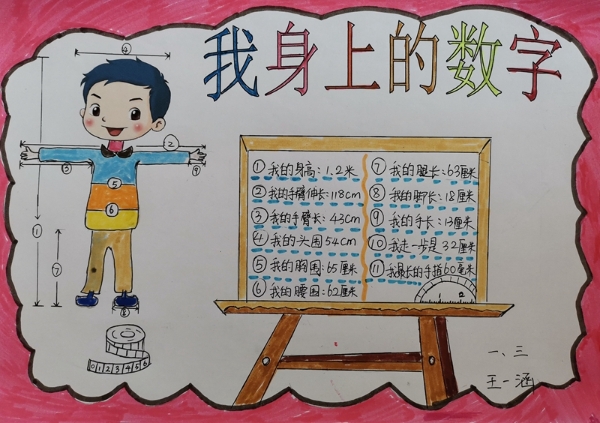 我身上的数字
①我的身高：1.2米
②我的手臂伸长：118cm
③我的手臂长：43cm
④我的头围54cm
⑤我的胸围：65厘米
⑥我的腰围：62厘米
⑦我的腿长：63厘米
⑧我的脚长：18厘米
⑨我的手长：13厘米
⑩我走一步是32厘米
④
②
③
⑨
⑤
⑥
①
⑦
⑧
0 1 2 3 4 5 6
一、三
王一涵